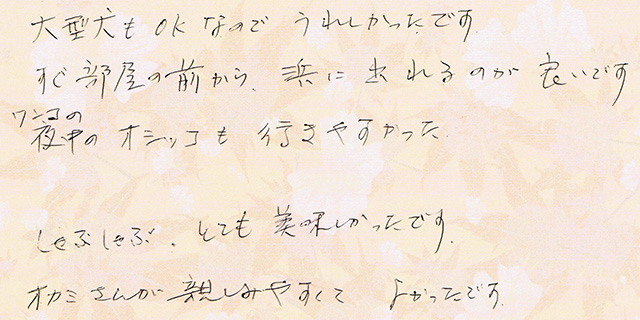 大型犬も OK なので うれしかったです
すぐ部屋の前から、浜に出れるのが良いです
ワンコの
夜中のオシッコも 行きやすかった
しゃぶしゃぶ、とても美味しかったです。
オカミさんが親しみやすくて よかったです。